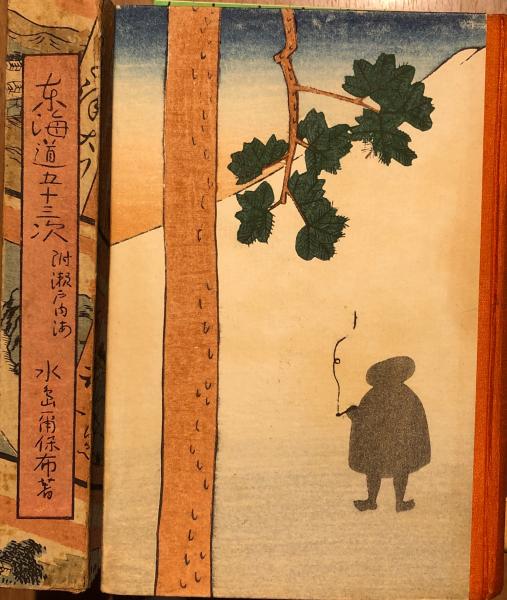 东海道五十三次
附瀬戸内海
水島爾保布著